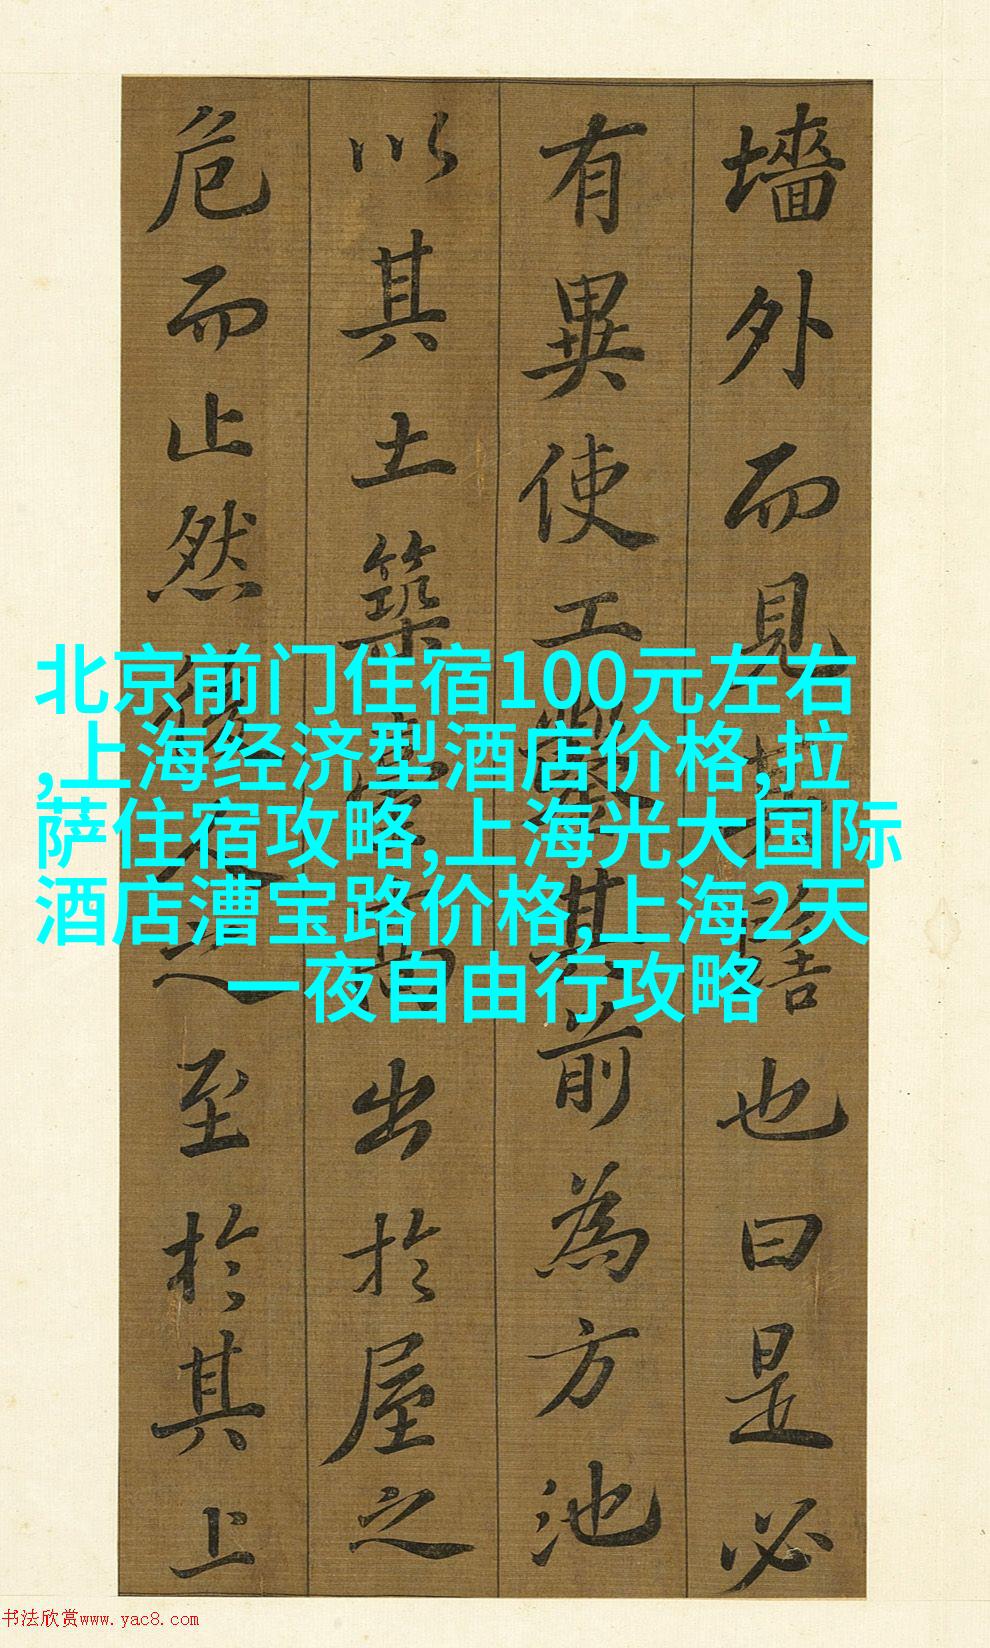 墻外而見其髻也曰是必
有異使工鑿其前為方池
以其土築臺高出於屋之
危而止然後人之至於其上
北京前门住宿100元左右
,上海经济型酒店价格,拉
萨住宿攻略,上海光大国际
酒店漕宝路价格,上海2天
一夜自由行攻略
书法欣赏www.yac8.com